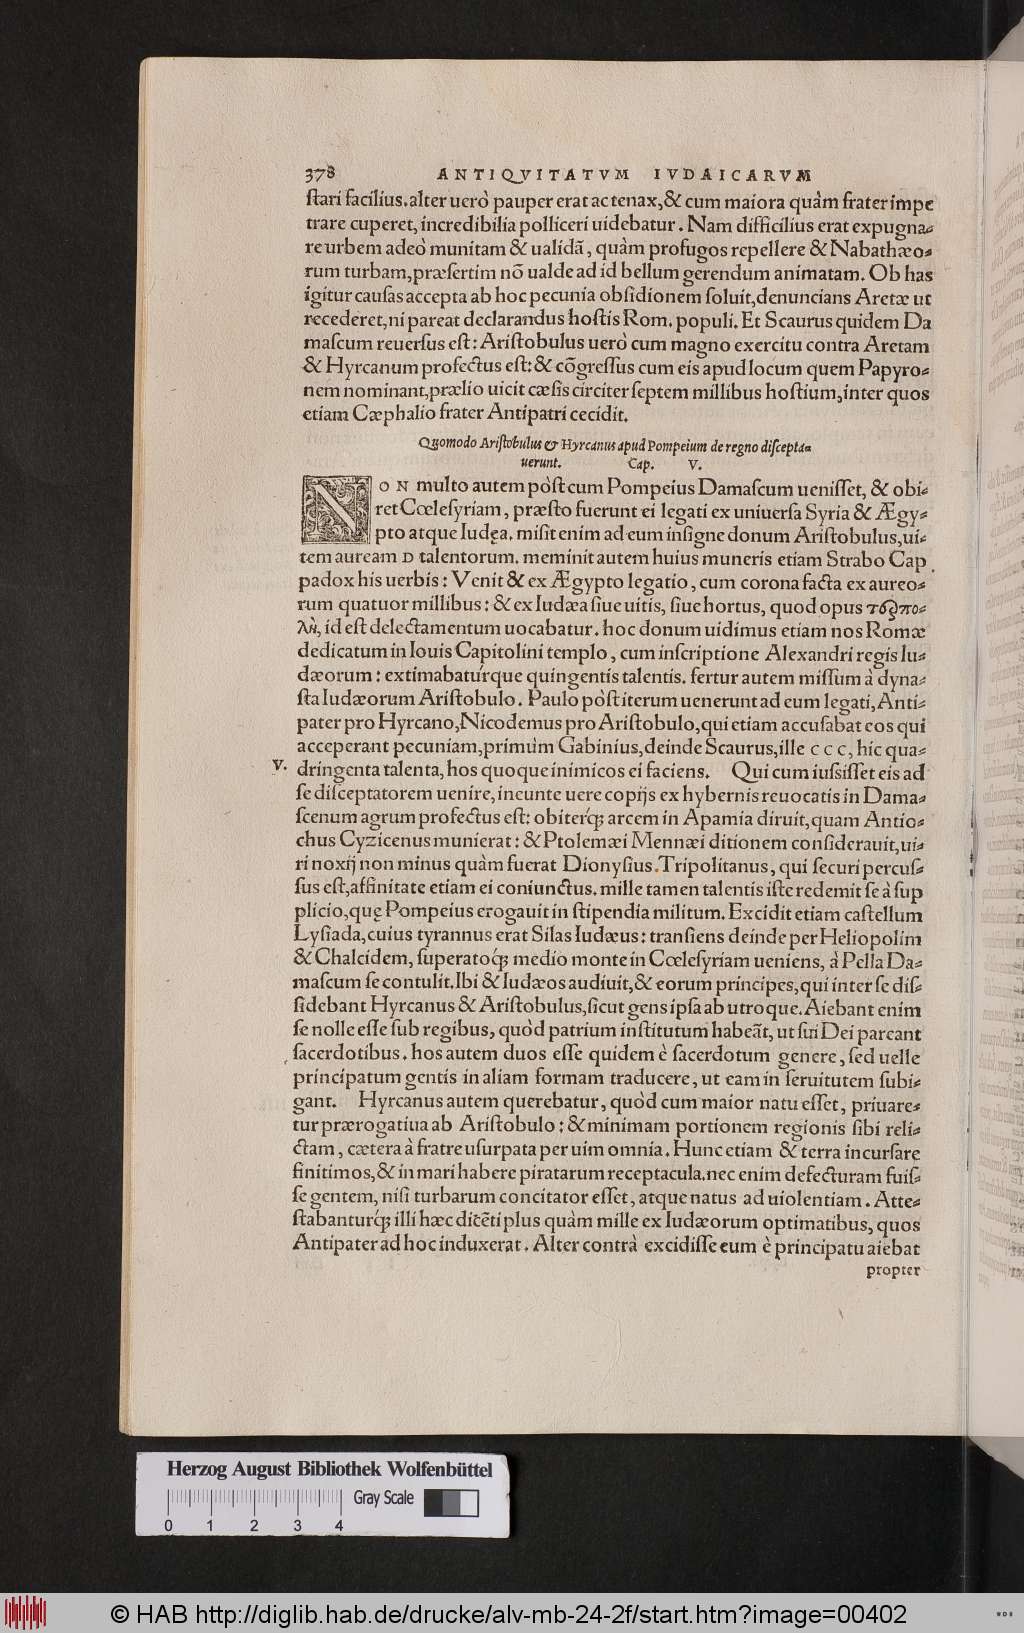 378 ANTIQVITATVM IVDAICARVM
ſtari facilius. alter uerò pauper erat ac tenax, & cum maiora quàm frater impe
trare cuperet, incredibilia polliceri uidebatur. Nam difficilius erat expugna-
re urbem adeò munitam & ualidã, quàm profugos repellere & Nabathæo-
rum turbam, præſertim nõ ualde ad id bellum gerendum animatam. Ob has
igitur cauſas accepta ab hoc pecunia obſidionem ſoluit, denuncians Aretæ ut
recederet, ni pareat declarandus hoſtis Rom. populi. Et Scaurus quidem Da
maſcum reuerſus eſt: Ariſtobulus uerò cum magno exercitu contra Aretam
& Hyrcanum profectus eſt: & cõgreſſus cum eis apud locum quem Papyro-
nem nominant, prælio uicit cæſis circiter ſeptem millibus hoſtium, inter quos
etiam Cæphalio frater Antipatri cecidit.
Quomodo Ariſtobulus & Hyrcanus apud Pompeium de regno diſcepta-
uerunt. Cap. V.
NON multo autem pòſt cum Pompeius Damaſcum ueniſſet, & obi-
ret Cœleſyriam, præſto fuerunt ei legati ex uniuerſa Syria & Ægy-
pto atque Iudęa. miſit enim ad eum inſigne donum Ariſtobulus, ui-
tem auream D talentorum. meminit autem huius muneris etiam Strabo Cap
padox his uerbis: Venit & ex Ægypto legatio, cum corona facta ex aureo-
rum quatuor millibus: & ex Iudæa ſiue uitis, ſiue hortus, quod opus τερπω-
λὴ, id eſt delectamentum uocabatur. hoc donum uidimus etiam nos Romæ
dedicatum in Iouis Capitolini templo, cum inſcriptione Alexandri regis Iu-
dæorum: extimabatúrque quingentis talentis. fertur autem miſſum à dyna-
ſta Iudæorum Ariſtobulo. Paulo pòſt iterum uenerunt ad eum legati, Anti-
pater pro Hyrcano, Nicodemus pro Ariſtobulo, qui etiam accuſabat eos qui
acceperant pecuniam, primùm Gabinius, deinde Scaurus, ille CCC, hic qua-
V. dringenta talenta, hos quoque inimicos ei faciens. Qui cum iuſsiſſet eis ad
ſe diſceptatorem uenire, ineunte uere copijs ex hybernis reuocatis in Dama-
ſcenum agrum profectus eſt: obiterq́; arcem in Apamia diruit, quam Antio-
chus Cyzicenus munierat: & Ptolemæi Mennæi ditionem conſiderauit, ui-
ri noxij non minus quàm fuerat Dionyſius Tripolitanus, qui ſecuri percuſ-
ſus eſt, affinitate etiam ei coniunctus. mille tamen talentis iſte redemit ſe à ſup
plicio, quę Pompeius erogauit in ſtipendia militum. Excidit etiam caſtellum
Lyſiada, cuius tyrannus erat Silas Iudæus: tranſiens deinde per Heliopolim
& Chalcidem, ſuperatoq́; medio monte in Cœleſyriam ueniens, à Pella Da-
maſcum ſe contulit. Ibi & Iudæos audiuit, & eorum principes, qui inter ſe diſ-
ſidebant Hyrcanus & Ariſtobulus, ſicut gens ipſa ab utroque. Aiebant enim
ſe nolle eſſe ſub regibus, quòd patrium inſtitutum habeãt, ut ſui Dei pareant
ſacerdotibus. hos autem duos eſſe quidem è ſacerdotum genere, ſed uelle
principatum gentis in aliam formam traducere, ut eam in ſeruitutem ſubi-
gant. Hyrcanus autem querebatur, quòd cum maior natu eſſet, priuare-
tur prærogatiua ab Ariſtobulo: & minimam portionem regionis ſibi reli-
ctam, cætera à fratre uſurpata per uim omnia. Hunc etiam & terra incurſare
finitimos, & in mari habere piratarum receptacula. nec enim defecturam fuiſ-
ſe gentem, niſi turbarum concitator eſſet, atque natus ad uiolentiam. Atte-
ſtabanturq́; illi hæc dicẽti plus quàm mille ex Iudæorum optimatibus, quos
Antipater ad hoc induxerat. Alter contrà excidiſſe eum è principatu aiebat
propter
Herzog August Bibliothek Wolfenbüttel
Gray Scale
0 1 2 3 4
© HAB http://diglib.hab.de/drucke/alv-mb-24-2f/start.htm?image=00402